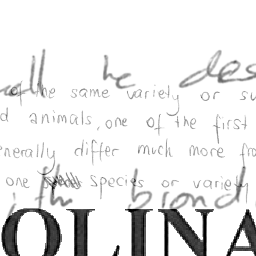 all he des
of the same variety or su
d animals, one of the first
enerally differ much more fro
one species or variety
ith blond
OLINA